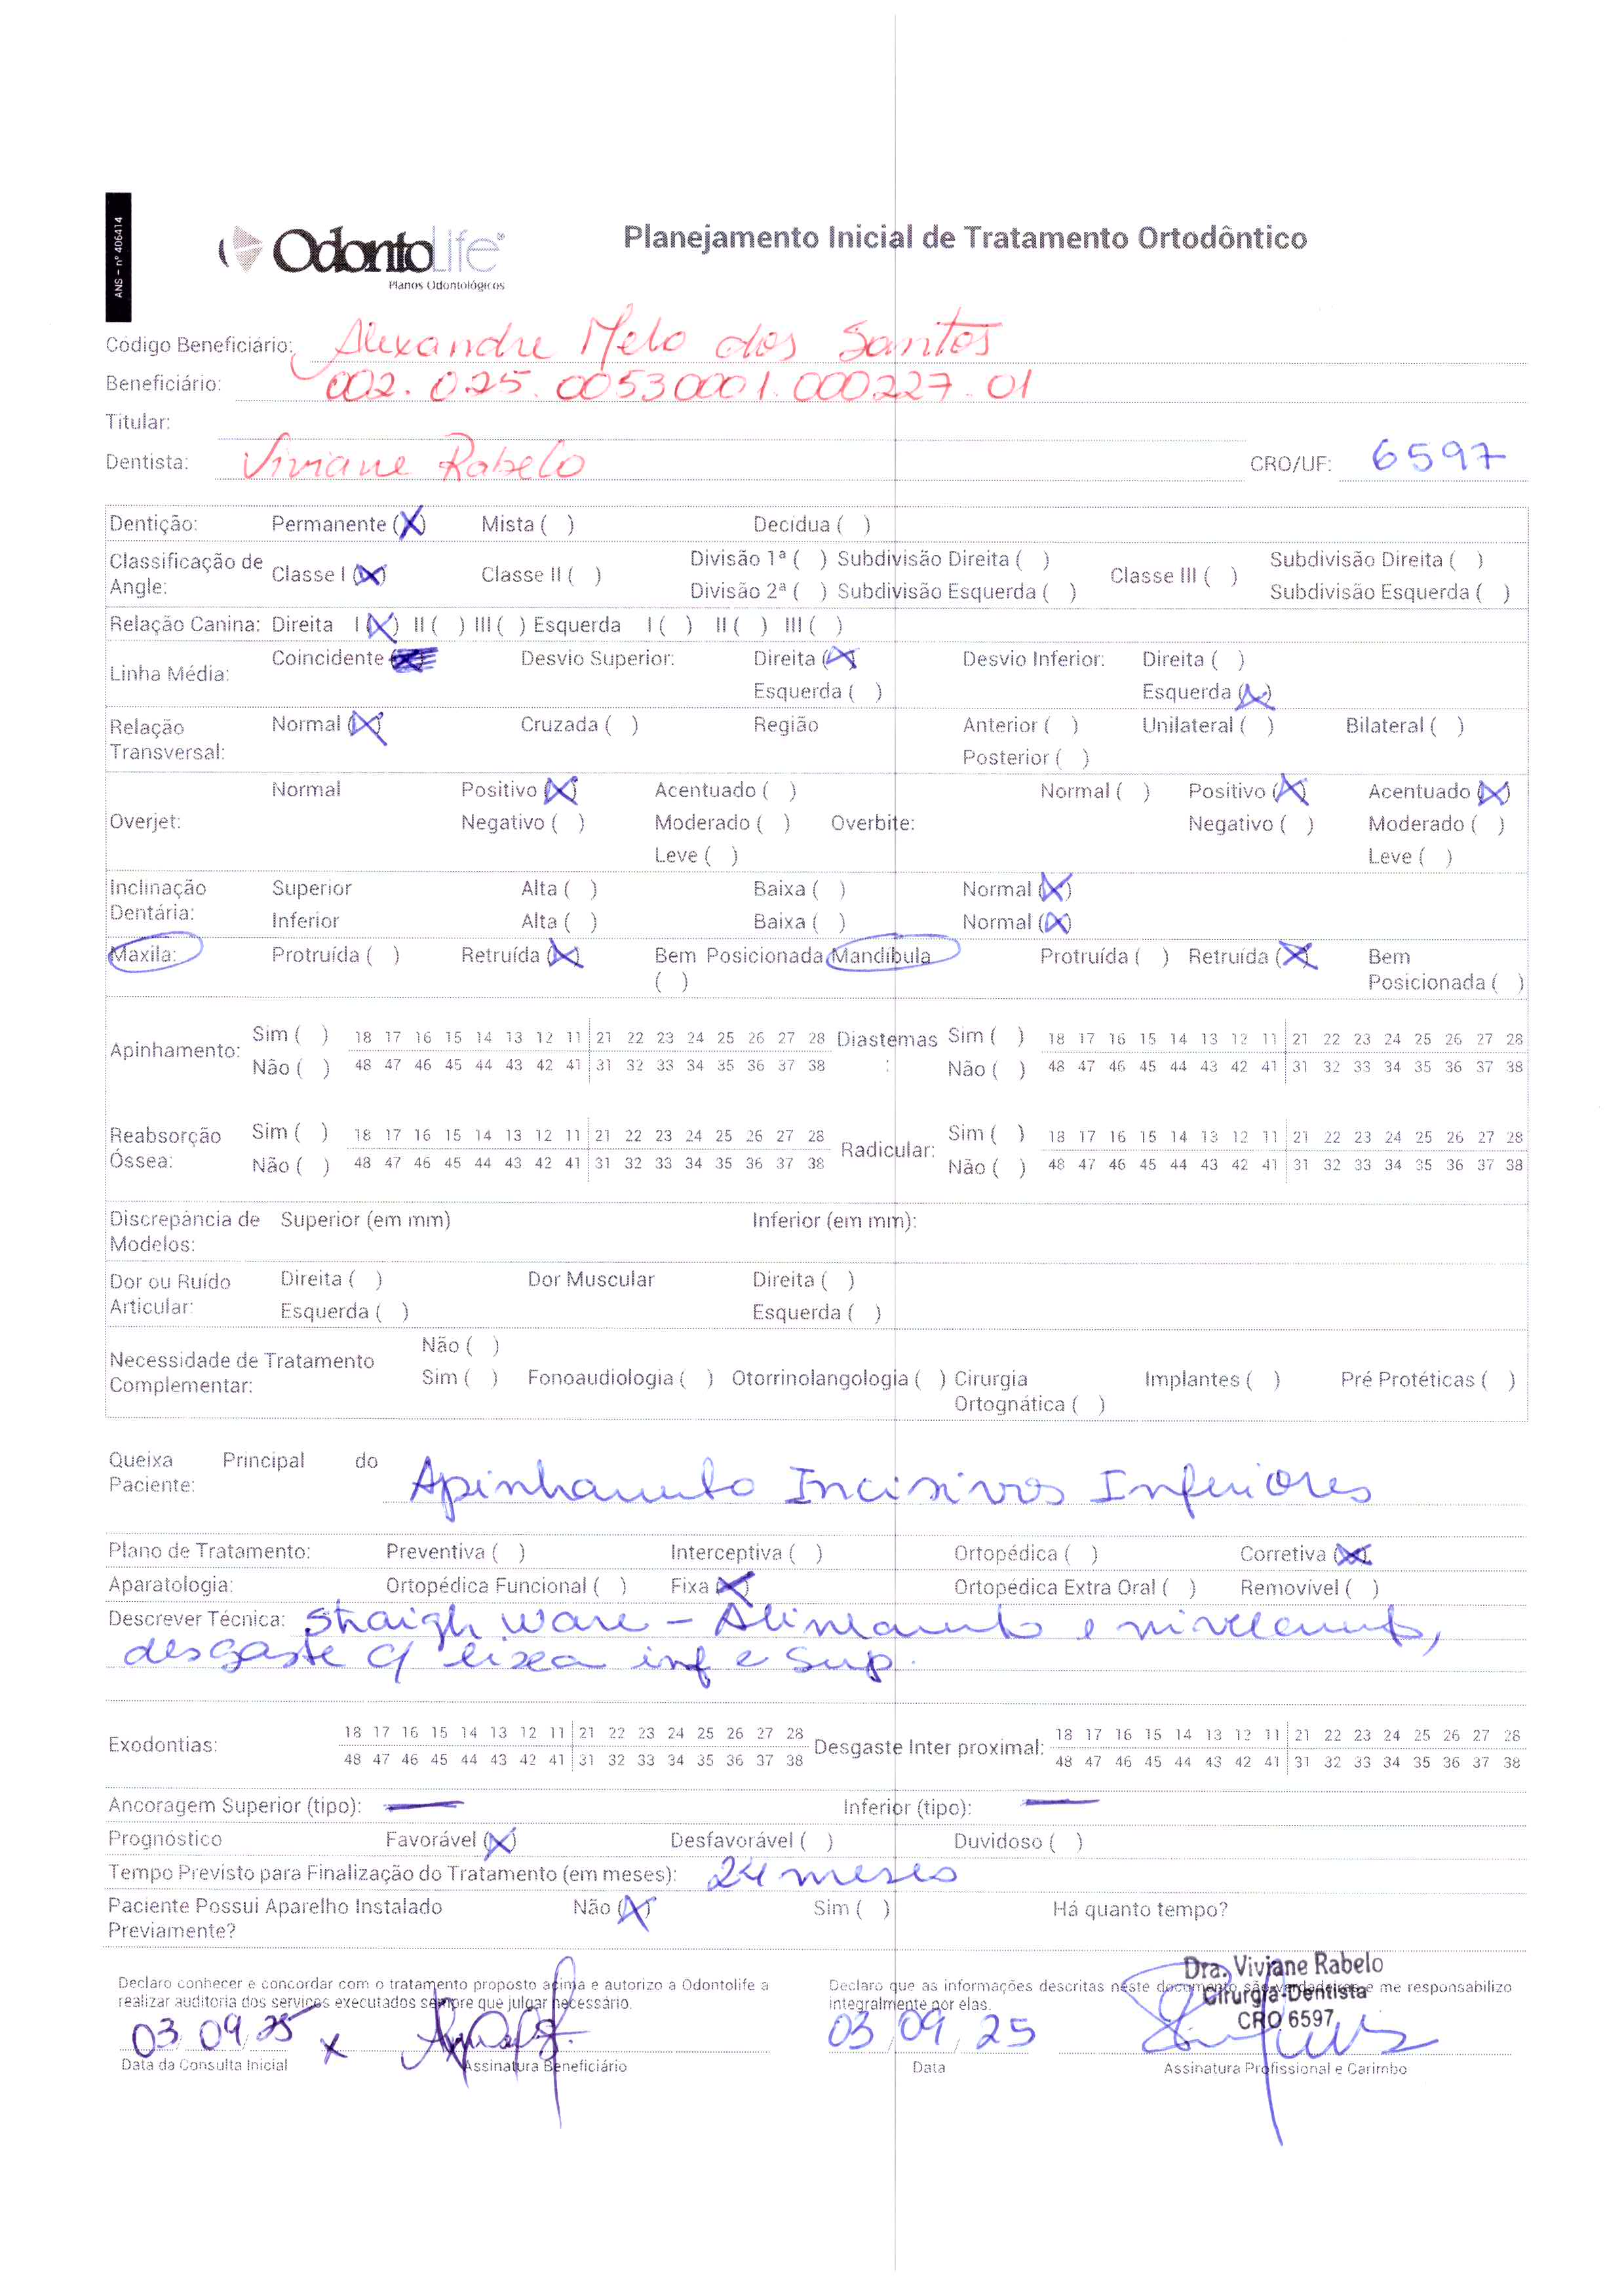 ANS - nº 406414
OdontoLife®
Planos Odontológicos
Planejamento Inicial de Tratamento Ortodôntico
Código Beneficiário: Alexandre Melo dos Santos
Beneficiário: 002.025.00530001.000227.01
Titular:
Dentista: Viviane Rabelo CRO/UF: 6597
Dentição: Permanente (X) Mista ( ) Decídua ( )
Classificação de Angle: Classe I (X) Classe II ( ) Divisão 1ª ( ) Subdivisão Direita ( ) Classe III ( ) Subdivisão Direita ( )
Divisão 2ª ( ) Subdivisão Esquerda ( ) Subdivisão Esquerda ( )
Relação Canina: Direita I (X) II ( ) III ( ) Esquerda I ( ) II ( ) III ( )
Linha Média: Coincidente Desvio Superior: Direita (X) Desvio Inferior: Direita ( )
Esquerda ( ) Esquerda (X)
Relação Transversal: Normal (X) Cruzada ( ) Região Anterior ( ) Unilateral ( ) Bilateral ( )
Posterior ( )
Overjet: Normal Positivo (X) Acentuado ( ) Overbite: Normal ( ) Positivo (X) Acentuado (X)
Negativo ( ) Moderado ( ) Negativo ( ) Moderado ( )
Leve ( ) Leve ( )
Inclinação Dentária: Superior Alta ( ) Baixa ( ) Normal (X)
Inferior Alta ( ) Baixa ( ) Normal (X)
Maxila: Protruída ( ) Retruída (X) Bem Posicionada ( ) Mandíbula Protruída ( ) Retruída (X) Bem Posicionada ( )
Apinhamento: Sim ( ) 18 17 16 15 14 13 12 11 21 22 23 24 25 26 27 28 Diastemas : Sim ( ) 18 17 16 15 14 13 12 11 21 22 23 24 25 26 27 28
Não ( ) 48 47 46 45 44 43 42 41 31 32 33 34 35 36 37 38 Não ( ) 48 47 46 45 44 43 42 41 31 32 33 34 35 36 37 38
Reabsorção Óssea: Sim ( ) 18 17 16 15 14 13 12 11 21 22 23 24 25 26 27 28 Radicular: Sim ( ) 18 17 16 15 14 13 12 11 21 22 23 24 25 26 27 28
Não ( ) 48 47 46 45 44 43 42 41 31 32 33 34 35 36 37 38 Não ( ) 48 47 46 45 44 43 42 41 31 32 33 34 35 36 37 38
Discrepância de Modelos: Superior (em mm) Inferior (em mm):
Dor ou Ruído Articular: Direita ( ) Dor Muscular Direita ( )
Esquerda ( ) Esquerda ( )
Necessidade de Tratamento Complementar: Não ( )
Sim ( ) Fonoaudiologia ( ) Otorrinolangologia ( ) Cirurgia Ortognática ( ) Implantes ( ) Pré Protéticas ( )
Queixa Principal do Paciente: Apinhamento Incisivos Inferiores
Plano de Tratamento: Preventiva ( ) Interceptiva ( ) Ortopédica ( ) Corretiva (X)
Aparatologia: Ortopédica Funcional ( ) Fixa (X) Ortopédica Extra Oral ( ) Removível ( )
Descrever Técnica: Straigh Ware - Alinhamento e nivelamento,
desgaste c/ lixa inf e sup.
Exodontias: 18 17 16 15 14 13 12 11 21 22 23 24 25 26 27 28 Desgaste Inter proximal: 18 17 16 15 14 13 12 11 21 22 23 24 25 26 27 28
48 47 46 45 44 43 42 41 31 32 33 34 35 36 37 38 48 47 46 45 44 43 42 41 31 32 33 34 35 36 37 38
Ancoragem Superior (tipo): — Inferior (tipo): —
Prognóstico Favorável (X) Desfavorável ( ) Duvidoso ( )
Tempo Previsto para Finalização do Tratamento (em meses): 24 meses
Paciente Possui Aparelho Instalado Previamente? Não (X) Sim ( ) Há quanto tempo?
Declaro conhecer e concordar com o tratamento proposto acima e autorizo a Odontolife a
realizar auditoria dos serviços executados sempre que julgar necessário.
03 09 25 x
Data da Consulta Inicial Assinatura Beneficiário
Declaro que as informações descritas neste documento são verdadeiras e me responsabilizo
integralmente por elas.
Dra. Viviane Rabelo
Cirurgiã-Dentista
CRO 6597
03 09 25
Data Assinatura Profissional e Carimbo